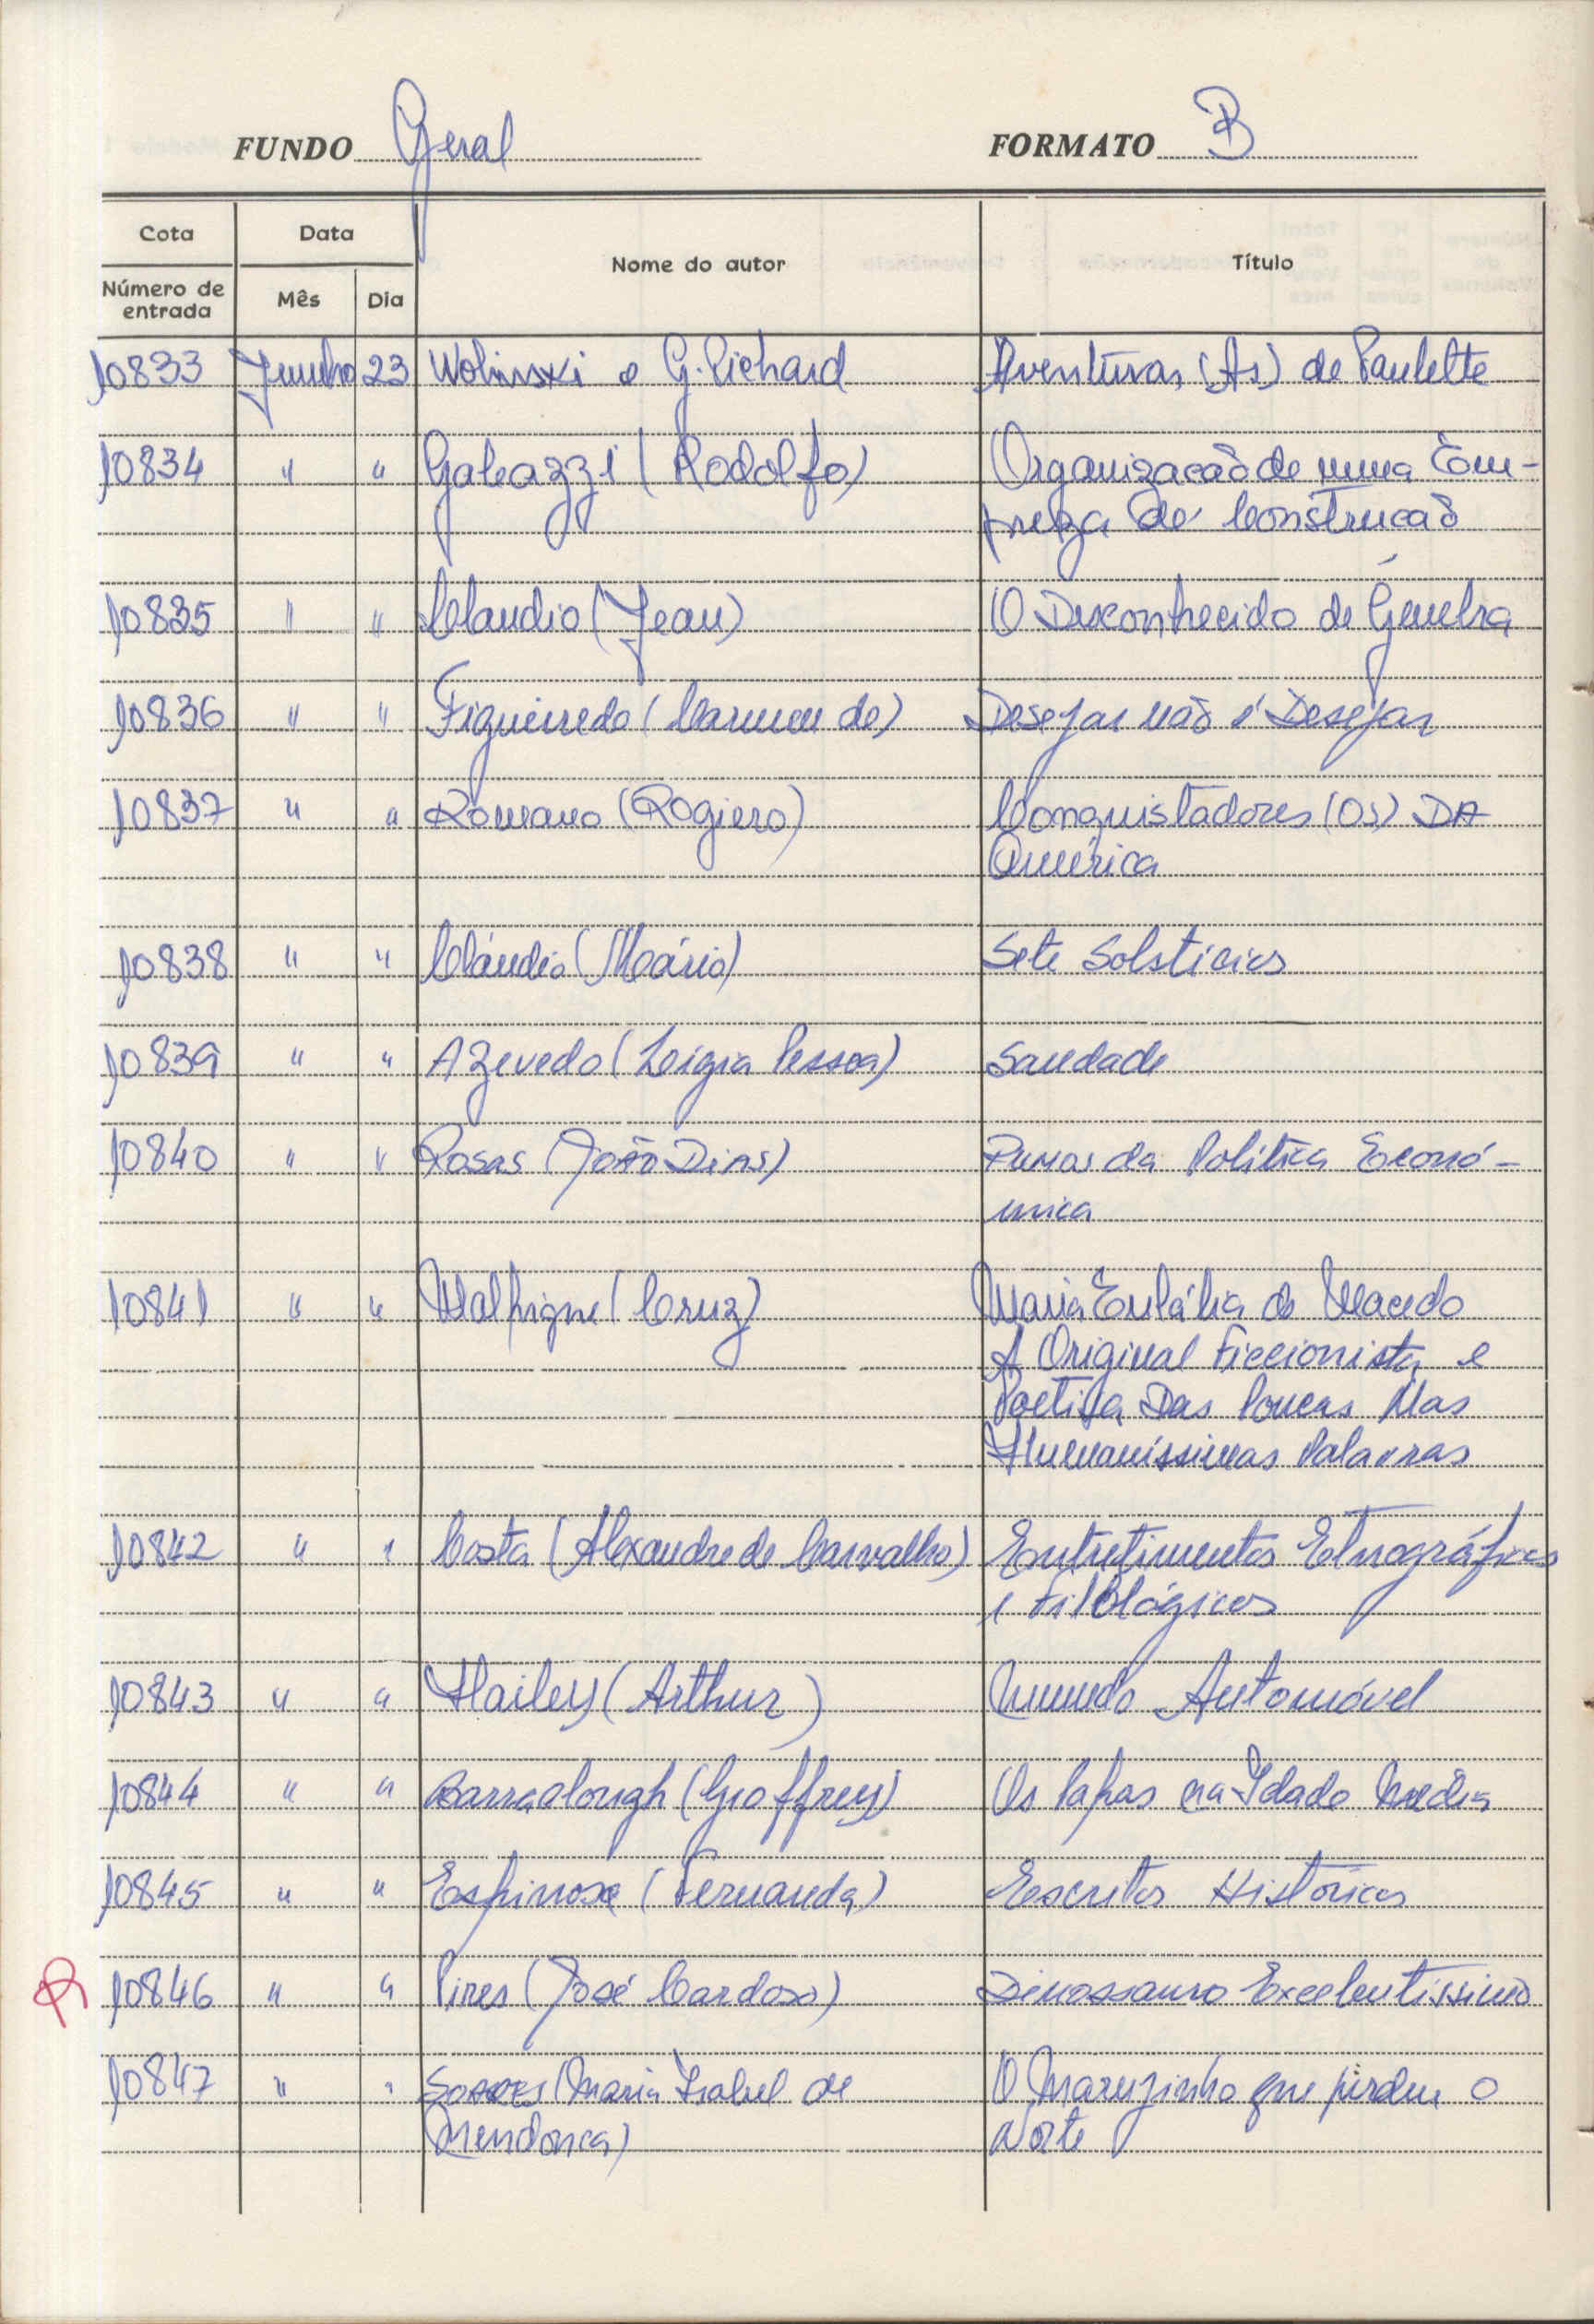 FUNDO Geral FORMATO B
Cota Data Nome do autor Título
Número de entrada Mês Dia
10833 Junho 23 Wolinski e G. Pichard Aventuras (As) de Paulette
10834 " " Galeazzi (Rodolfo) Organizacão de uma Em-
preza de Construcão
10835 " " Claudio (Jean) O Desconhecido de Génebra
10836 " " Figueiredo (Carmen de) Desejar não é Desejar
10837 " " Romano (Rogiero) Conquistadores (Os) DA
América
10838 " " Cláudio (Mário) Sete Solstícios
10839 " " Azevedo (Lígia Pessoa) Saudade
10840 " " Rosas (João Dias) Rumos da Política Econó-
mica
10841 " " Malpique (Cruz) Maria Eulália de Macedo
A Original Ficcionista e
Poetisa Das Poucas Mas
Humaníssimas Palavras
10842 " " Costa (Alexandre de Carvalho) Entretimentos Etnográficos
e Filológicos
10843 " " Hailey (Arthur) Mundo Automóvel
10844 " " Barraclough (Geoffrey) Os Papas na Idade Média
10845 " " Espinosa (Fernanda) Escritos Históricos
R 10846 " " Pires (José Cardoso) Dinossauro Excelentíssimo
10847 " " Soares (Maria Isabel de O Marujinho que perdeu o
Mendonca) Norte